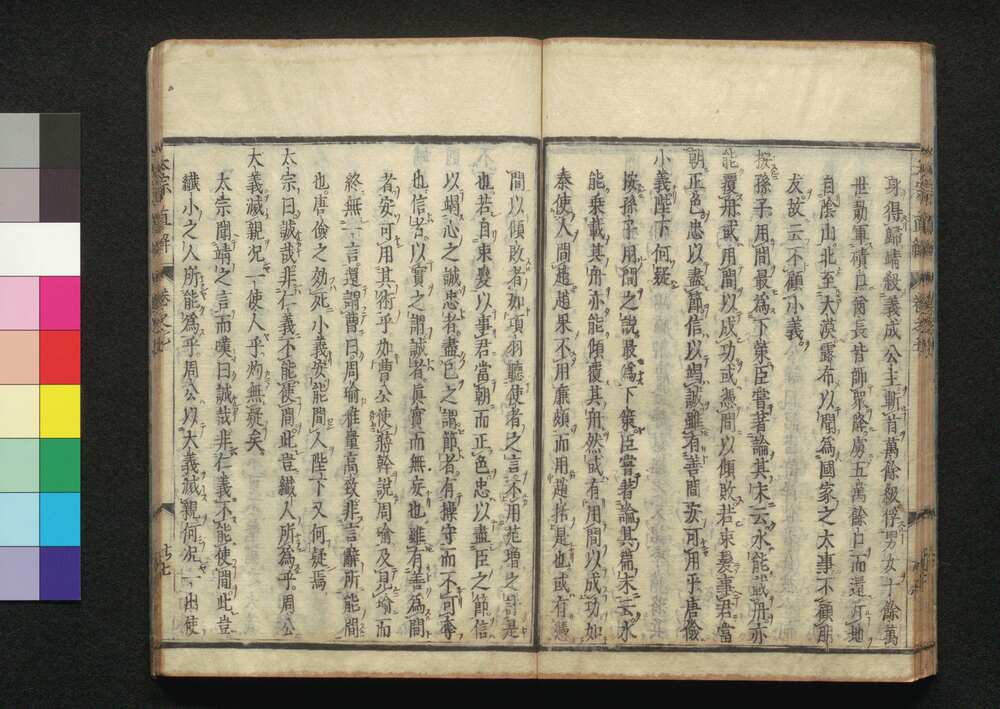 身得歸靖殺義成公主斬首萬餘級俘男女十餘萬
世勣軍磧口酋長皆帥眾降虜五萬餘口而還斥地
自陰山北至大漠露布以聞為國家之大事不顧朋
友故云不顧小義
按孫子用間最為下策臣嘗著論其末云水能載舟亦
能覆舟或用間以成功或憑間以傾敗若束髮事君當
朝正色忠以盡節信以竭誠雖有善間安可用乎唐儉
小義陛下何疑
按孫子用間之說最為下策臣嘗著論其篇末云水
能乗載其舟亦能傾覆其舟然或有用間以成功如
秦使人間趙趙果不用廉頗而用趙括是也或有憑
間以傾敗者如項羽聽使者之言不用范增之計是
也若自束髮以事君當朝而正色忠以盡臣之節信
以竭心之誠忠者盡已之謂節者有操守而不可奪
也信者以實之謂誠者真實而無妄也雖有善為間
者安可用其術乎如曹公使蔣幹說周瑜及見瑜而
終無一言還謂曹曰周瑜雅量高致非言辭所能間
也唐儉之効死小義安能間人陛下又何疑焉
太宗曰誠哉非仁義不能使間此豈纖人所為乎周公
大義滅親況一使人乎灼無疑矣
太宗聞靖之言而嘆曰誠哉非仁義不能使間此豈
纖小之人所能為乎周公以大義滅親何況一出使
太宗 直解
卷之
廿七